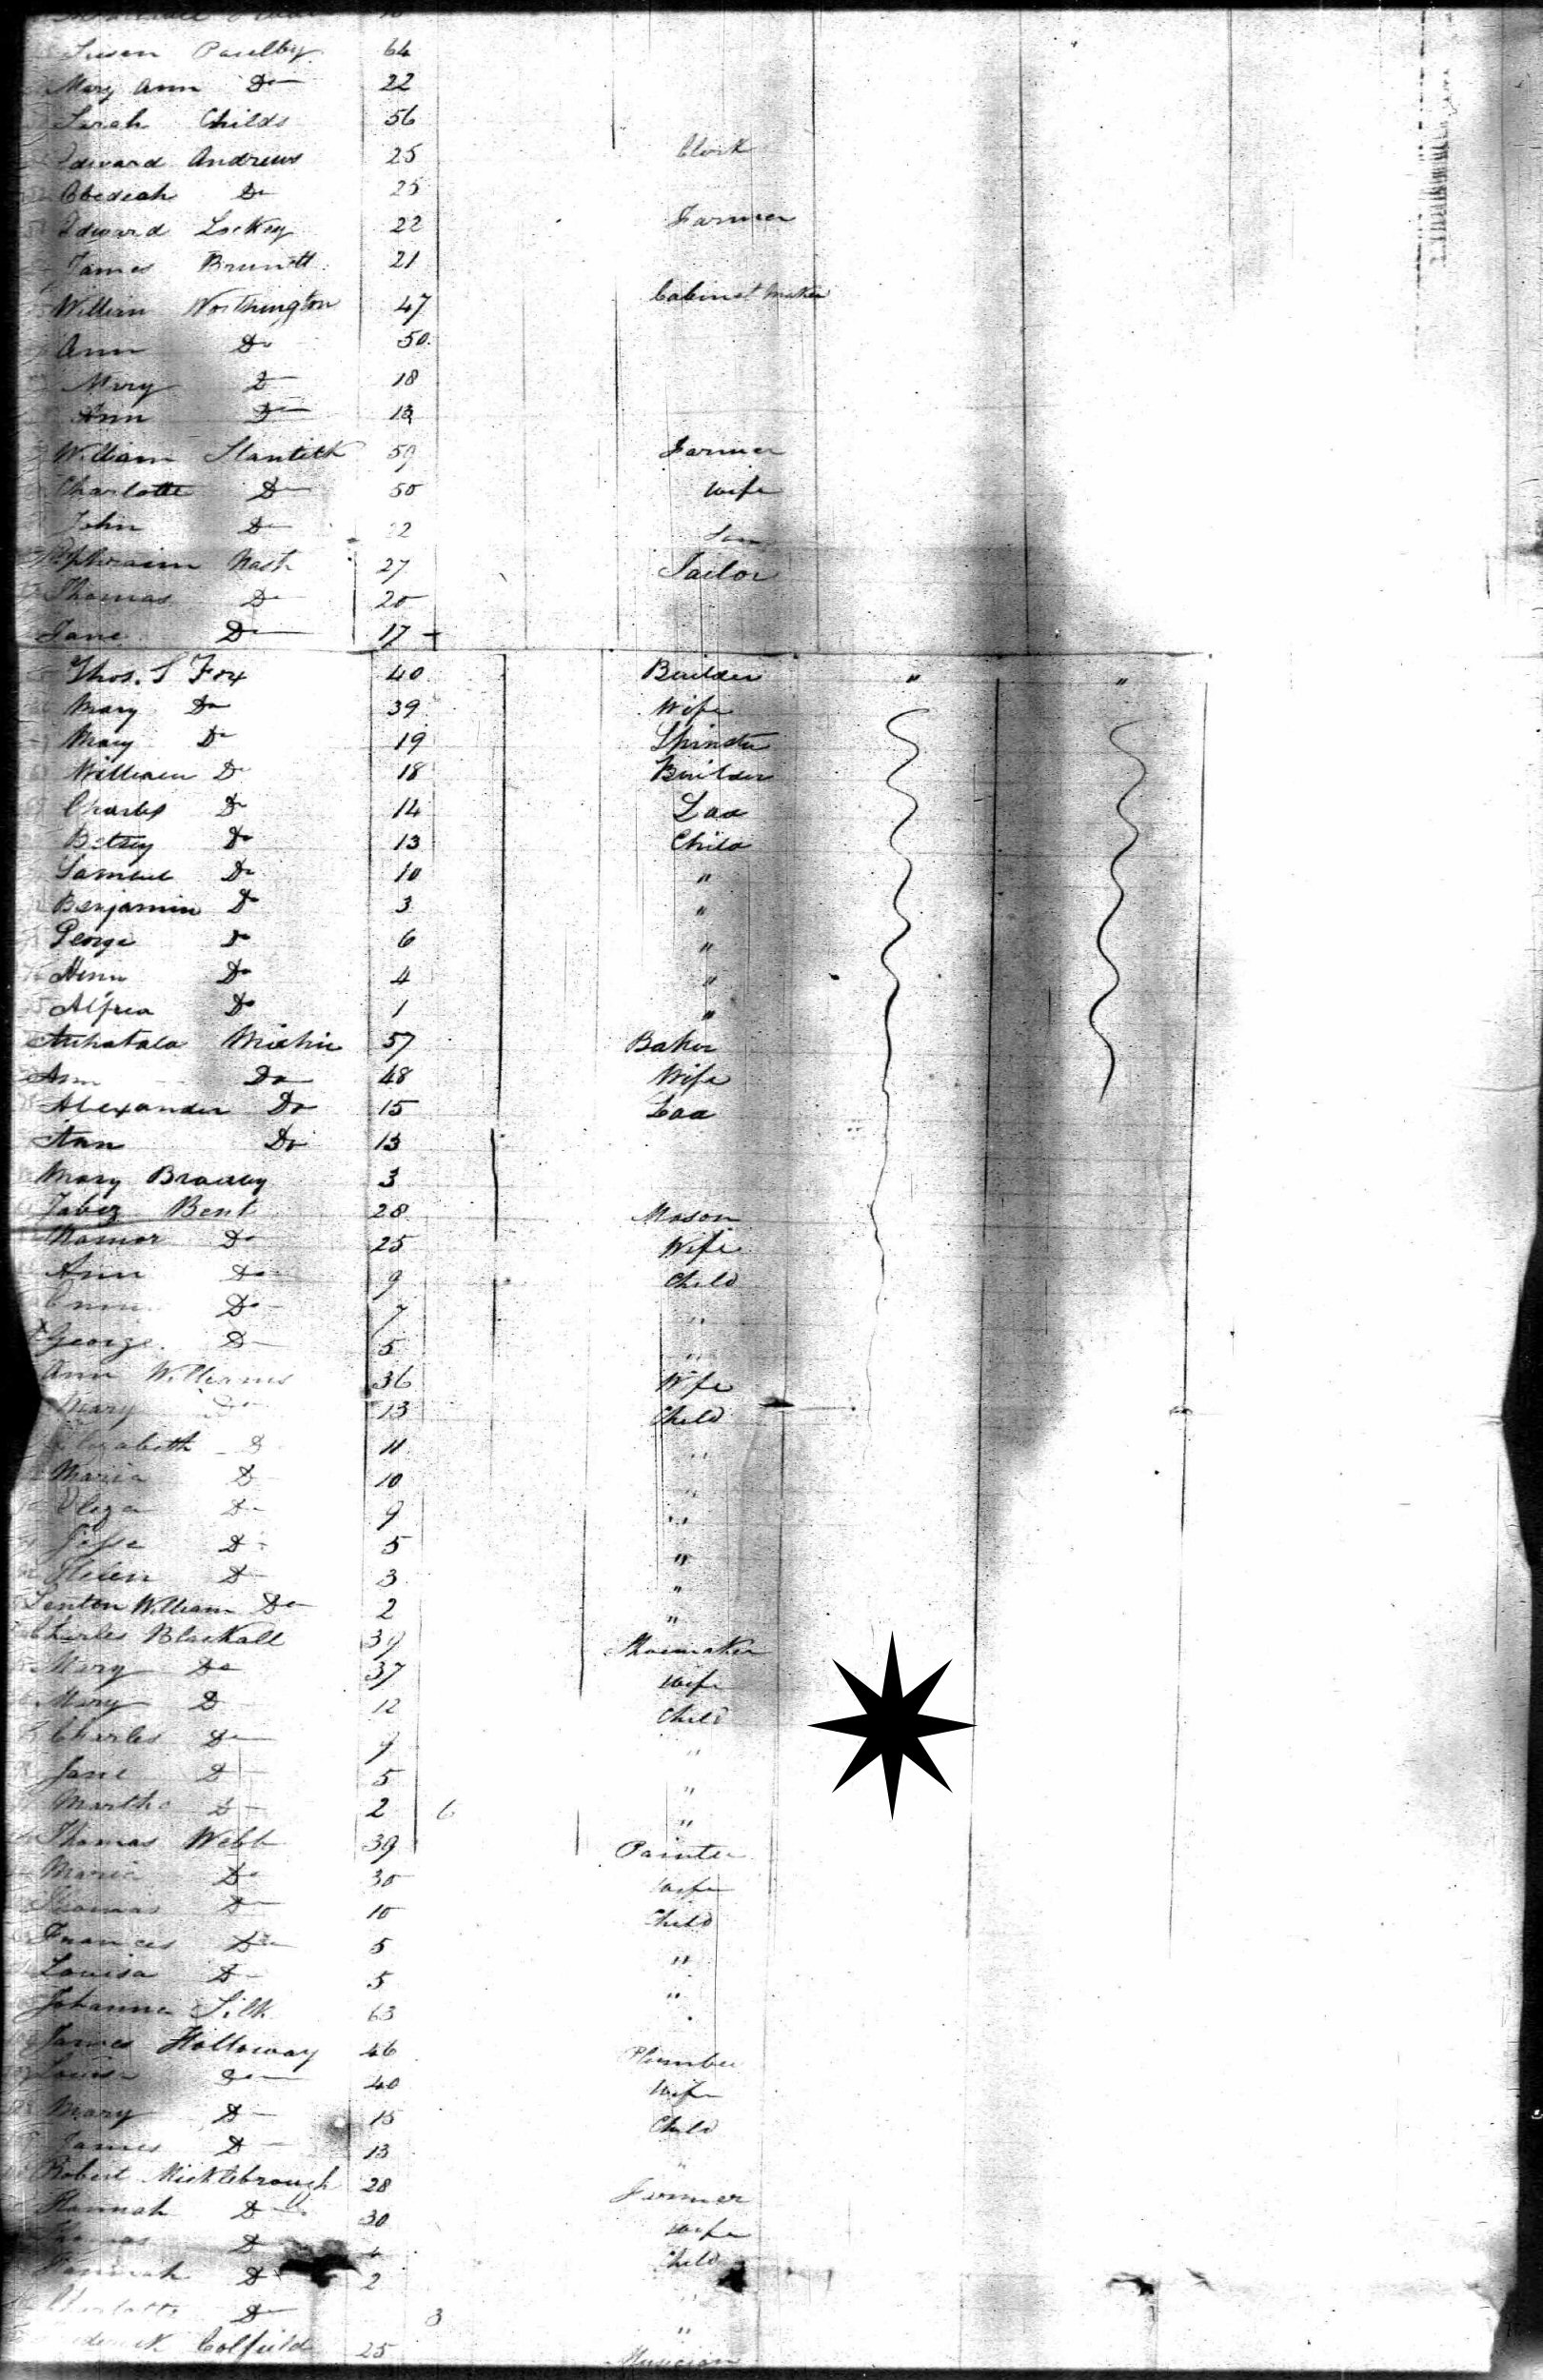 Susan Paulby 64
Mary Ann Do 22
Sarah Childs 56
Edward Andrews 25 Clerk
Obediah Do 25
Edward Lockey 22 Farmer
James 21
William Worthington 47 Cabinet Maker
Ann Do 50
Mary Do 18
Ann Do 13
William 59 Farmer
Charlotte Do 50 Wife
John Do 22 Son
Ephraim Nash 27 Tailor
Thomas Do 20
Jane Do 17
Thos. S Fox 40 Builder " "
Mary Do 39 Wife
Mary Do 19 Spinster
William Do 18 Builder
Charles Do 14 Lad
Betsey Do 13 Child
Samuel Do 10 "
Benjamin Do 3 "
George Do 6 "
Henry Do 4 "
Alfred Do 1 "
Michie 57 Baker
Ann Do 48 Wife
Alexander Do 15 Lad
Ann Do 13
Mary Bradley 3
Jabez Bent 28 Mason
Do 25 Wife
Ann Do 9 Child
Do 7 "
George Do 5 "
Ann Williams 36 Wife
Mary Do 13 Child
Elizabeth Do 11 "
Maria Do 10 "
Do 9 "
Jesse Do 5 "
Helen Do 3 "
William Do 2 "
Charles Blackall 39 Shoemaker
Mary Do 37 Wife
Mary Do 12 Child
Charles Do 9 "
Jane Do 5 "
Martha Do 2 6 "
Thomas Webb 39 Painter
Maria Do 30 Wife
Thomas Do 10 Child
Frances Do 5 "
Louisa Do 5 "
Johanna Silk 63
James Holloway 46 Plumber
Louisa Do 40 Wife
Mary Do 15 Child
James Do 13 "
Robert Micklebrough 28 Farmer
Hannah Do 30 Wife
Thomas Do 4 Child
Hannah Do 2 "
Charlotte Do 3 "
Frederick Colfield 25 Musician